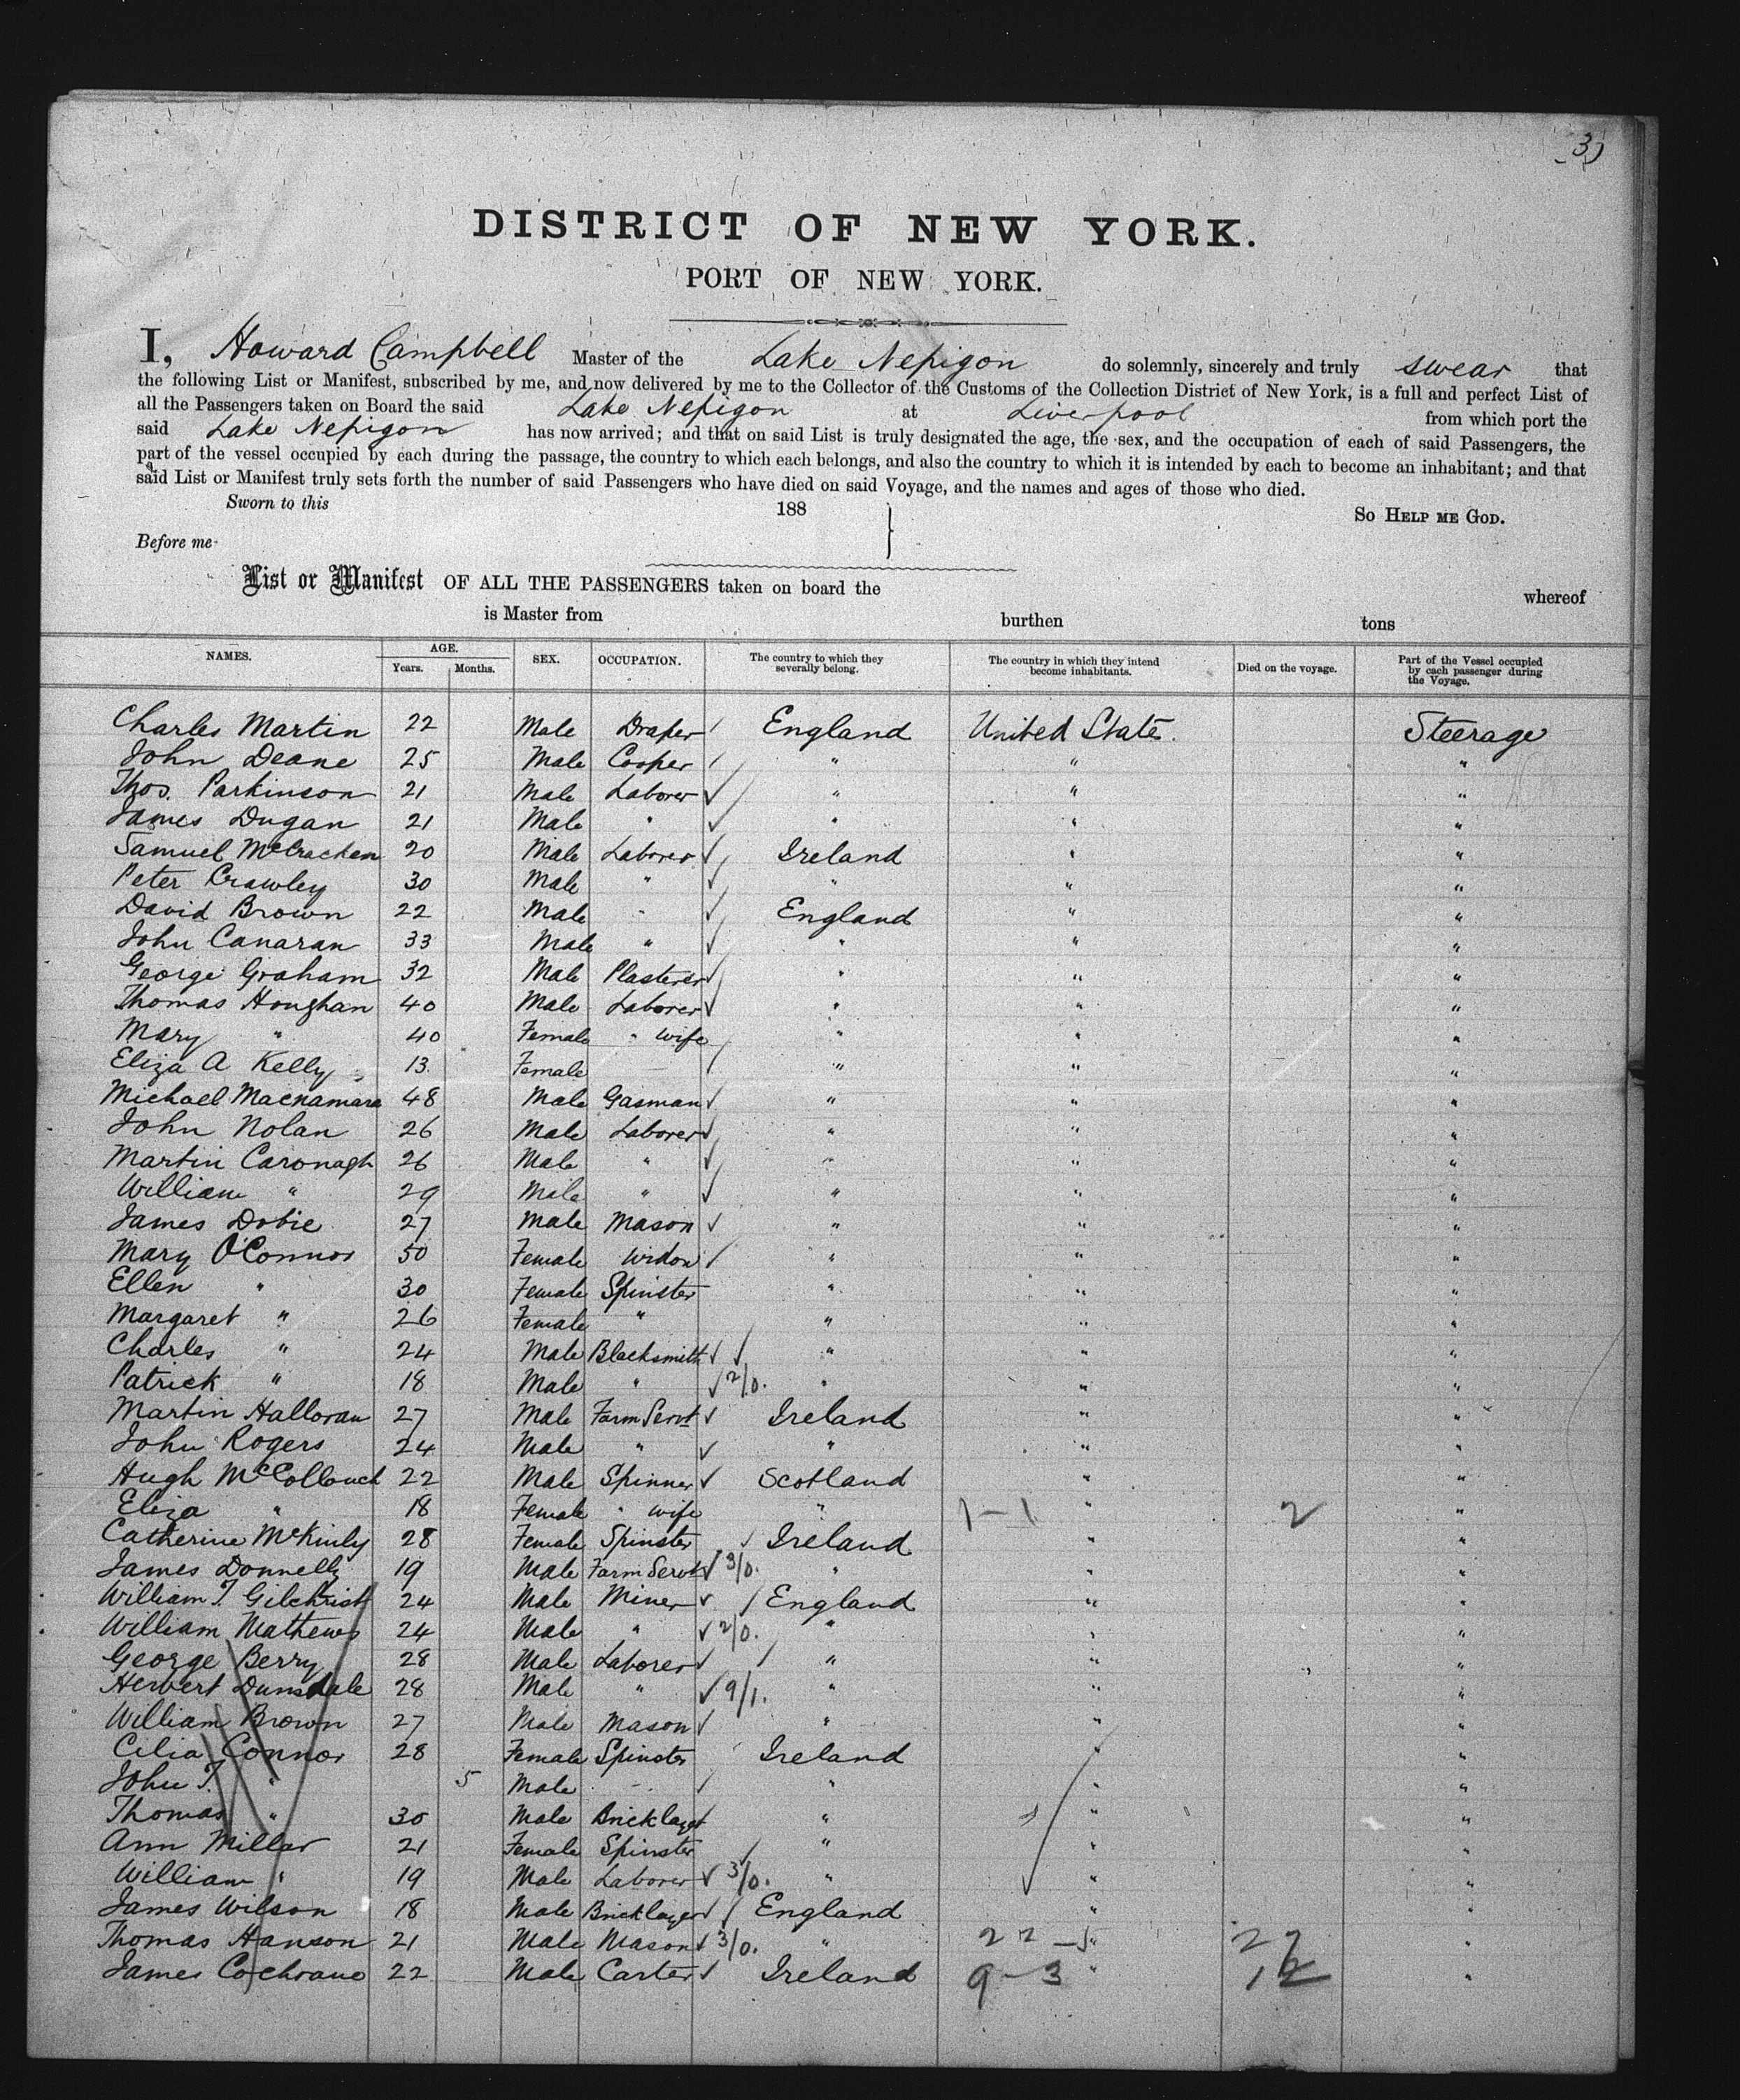 3)
DISTRICT OF NEW YORK.
PORT OF NEW YORK.
I, Howard Campbell Master of the Lake Nepigon do solemnly, sincerely and truly swear that
the following List or Manifest, subscribed by me, and now delivered by me to the Collector of the Customs of the Collection District of New York, is a full and perfect List of
all the Passengers taken on Board the said Lake Nepigon at Liverpool from which port the
said Lake Nepigon has now arrived; and that on said List is truly designated the age, the sex, and the occupation of each of said Passengers, the
part of the vessel occupied by each during the passage, the country to which each belongs, and also the country to which it is intended by each to become an inhabitant; and that
said List or Manifest truly sets forth the number of said Passengers who have died on said Voyage, and the names and ages of those who died.
Sworn to this 188 } So HELP ME GOD.
Before me
List or Manifest OF ALL THE PASSENGERS taken on board the whereof
is Master from burthen tons
NAMES. AGE. Years. Months. SEX. OCCUPATION. The country to which they severally belong. The country in which they intend become inhabitants. Died on the voyage. Part of the Vessel occupied by each passenger during the Voyage.
Charles Martin 22 Male Draper England United States. Steerage
John Deane 25 Male Cooper " " "
Thos. Parkinson 21 Male Laborer " " "
James Dugan 21 Male " " " "
Samuel McCracken 20 Male Laborer Ireland " "
Peter Crawley 30 Male " " " "
David Brown 22 Male " England " "
John Canaran 33 Male " " " "
George Graham 32 Male Plasterer " " "
Thomas Houghan 40 Male Laborer " " "
Mary " 40 Female " wife " " "
Eliza A Kelly 13 Female " " "
Michael Macnamara 48 Male Gasman " " "
John Nolan 26 Male Laborer " " "
Martin Caronagh 26 Male " " " "
William " 29 Male " " " "
James Dobie 27 Male Mason " " "
Mary O'Connor 50 Female Widow " " "
Ellen " 30 Female Spinster " " "
Margaret " 26 Female " " " "
Charles " 24 Male Blacksmith " " "
Patrick " 18 Male " 2/0. " " "
Martin Halloran 27 Male Farm Servt Ireland " "
John Rogers 24 Male " " " "
Hugh McCollouch 22 Male Spinner Scotland " "
Eliza " 18 Female " wife " 1-1 " 2 "
Catherine McKinly 28 Female Spinster Ireland " "
James Donnelly 19 Male Farm Servt 3/0. " " "
William T. Gilchrist 24 Male Miner England " "
William Mathews 24 Male " 2/0. " " "
George Berry 28 Male Laborer " " "
Herbert Dunsdale 28 Male " 9/1. " " "
William Brown 27 Male Mason " " "
Celia Connor 28 Female Spinster Ireland " "
John T. " 5 Male - " " "
Thomas " 30 Male Bricklayer " " "
Ann Millar 21 Female Spinster " " "
William " 19 Male Laborer 3/0. " " "
James Wilson 18 Male Bricklayer England " "
Thomas Hanson 21 Male Mason 3/0. " 22-5 " "
James Cochrane 22 Male Carter Ireland 9-3 " 12 "